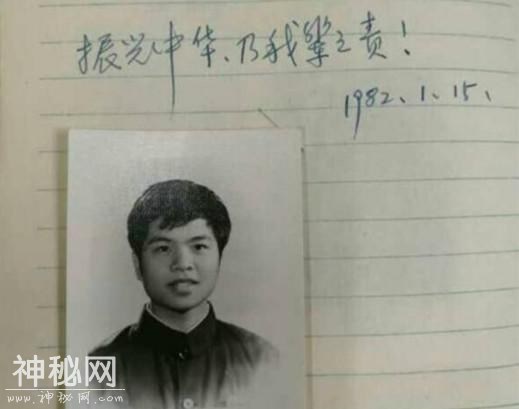 振兴中华、乃我辈之责！
1982、1、15、
神秘网
www.神秘网.com